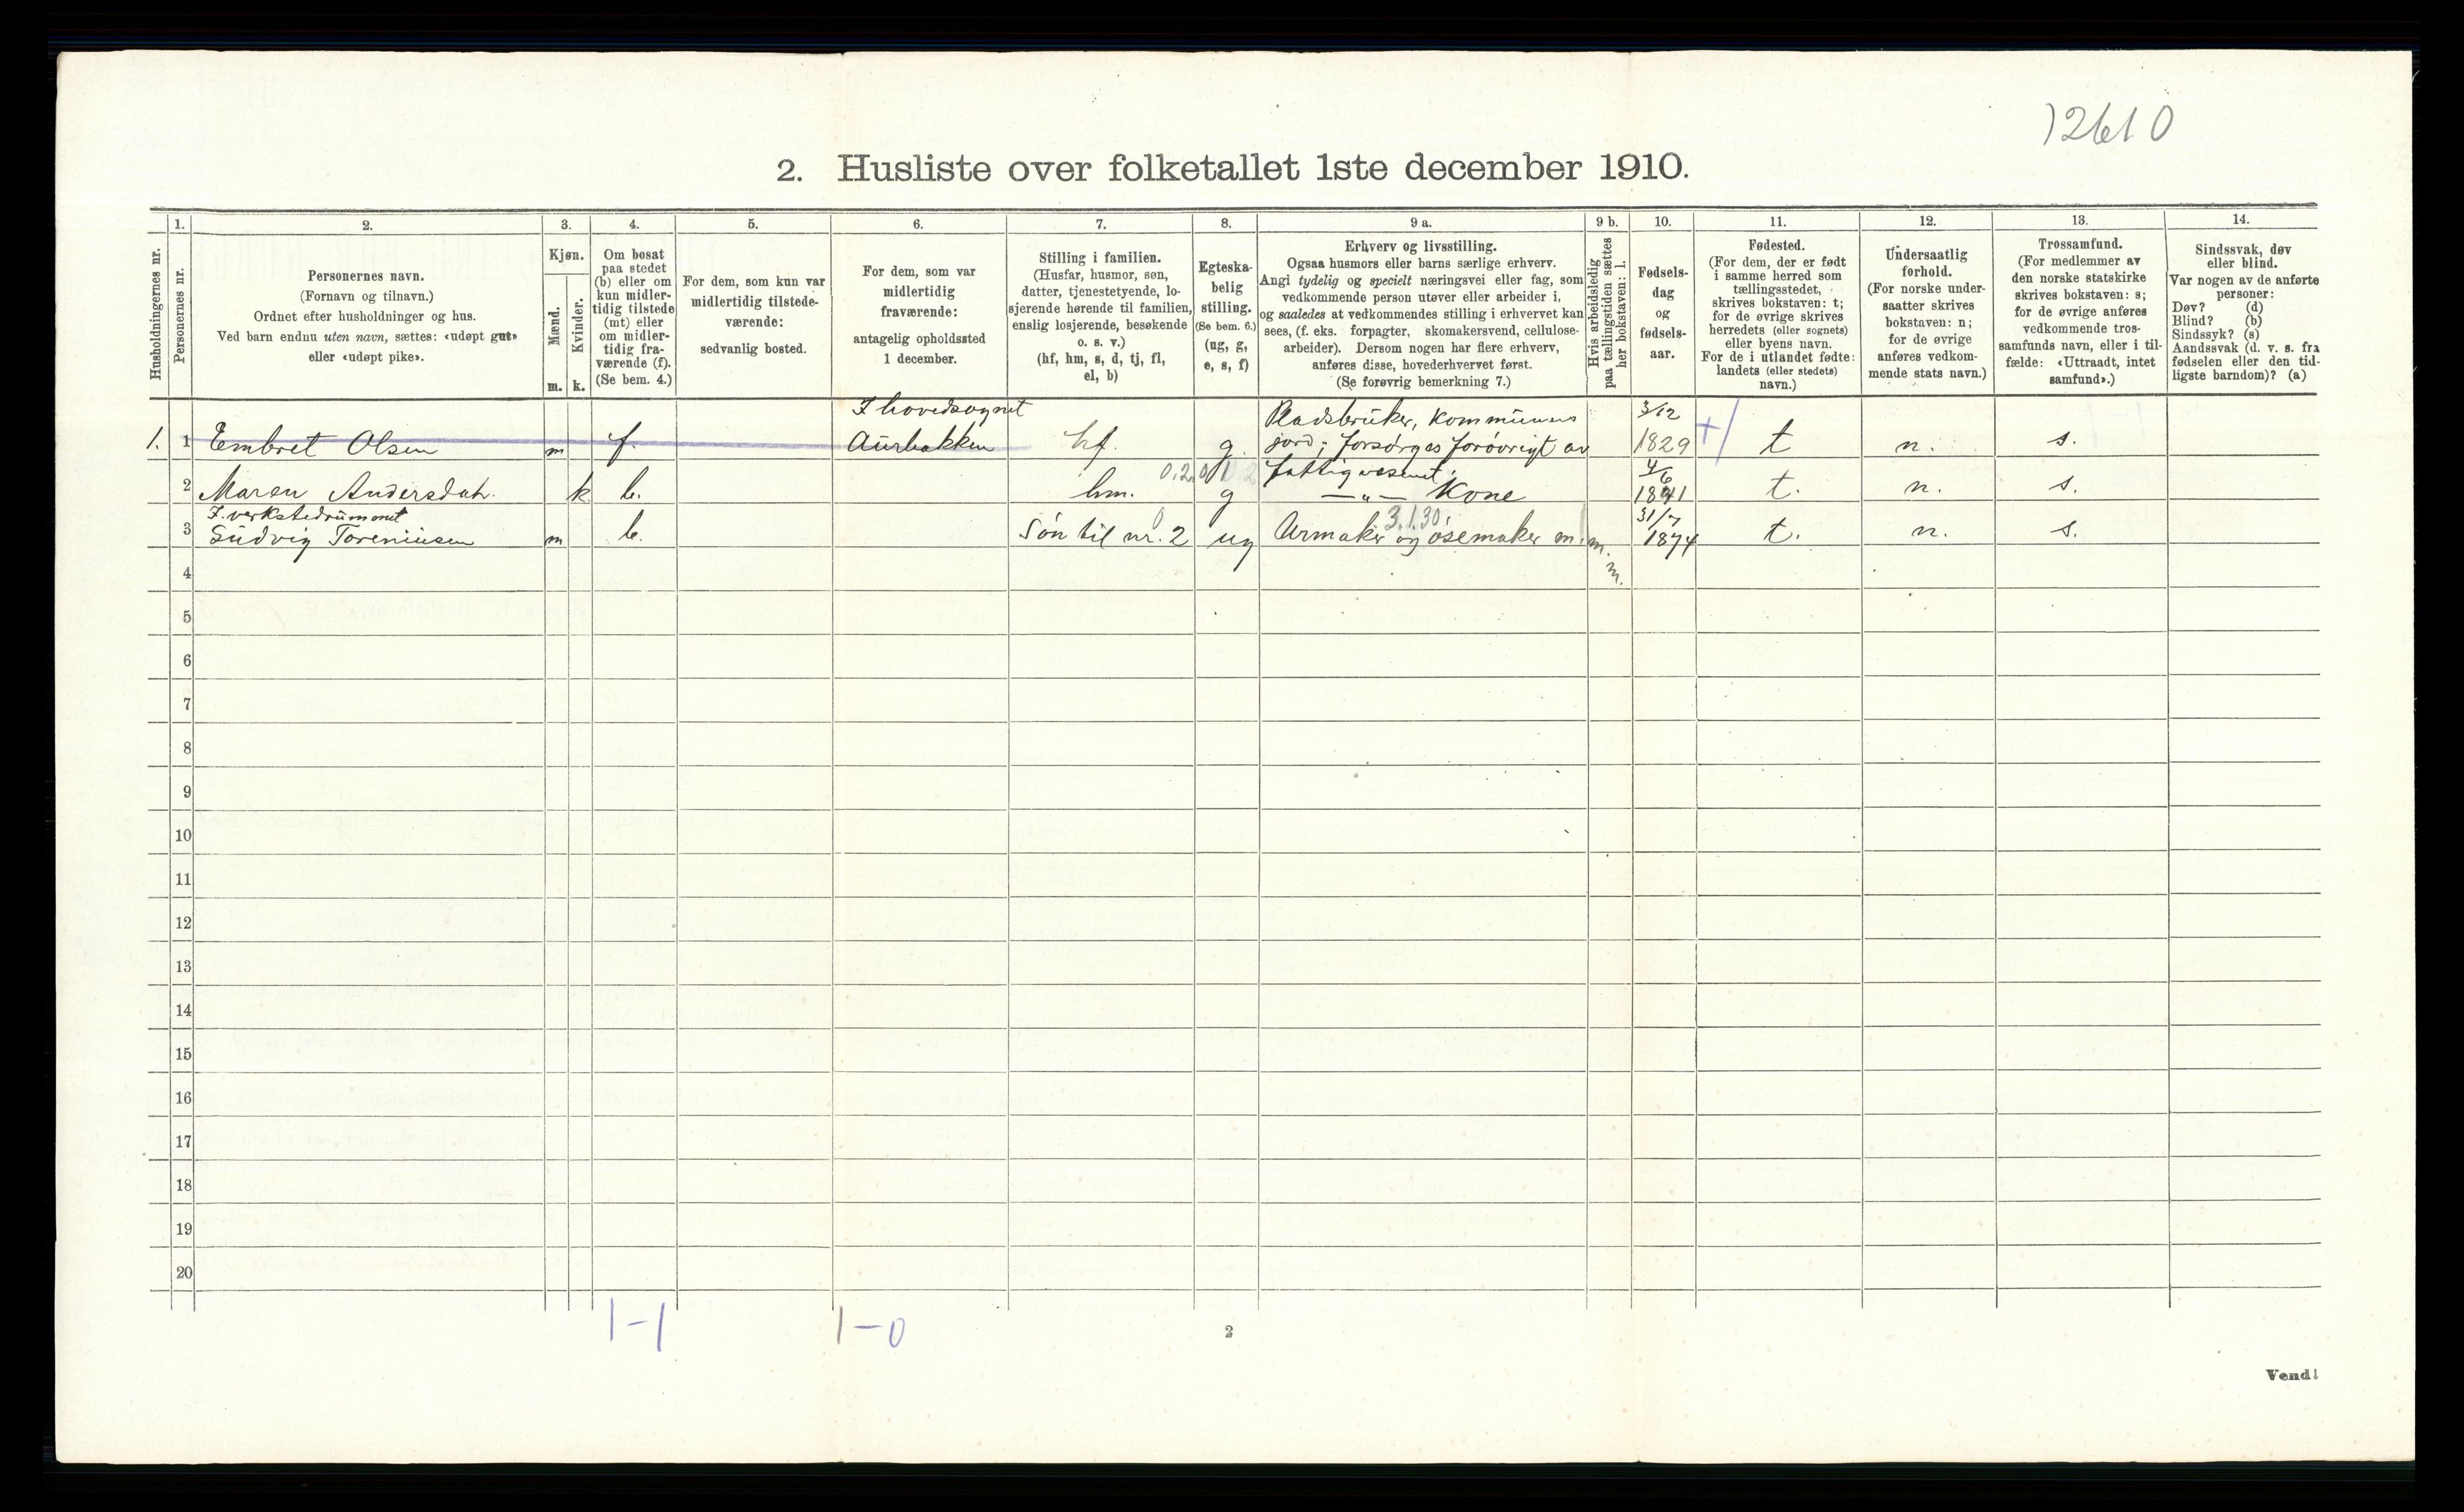 12610
2. Husliste over folketallet 1ste december 1910.
Husholdningernes nr.
1.
Personernes nr.
2.
Personernes navn.
(Fornavn og tilnavn.)
Ordnet efter husholdninger og hus.
Ved barn endnu uten navn, sættes: «udøpt gut»
eller «udøpt pike».
3.
Kjøn.
Mænd.
Kvinder.
m. k.
4.
Om bosat
paa stedet
(b) eller om
kun midler-
tidig tilstede
(mt) eller
om midler-
tidig fra-
værende (f).
(Se bem. 4.)
5.
For dem, som kun var
midlertidig tilstede-
værende:
sedvanlig bosted.
6.
For dem, som var
midlertidig
fraværende:
antagelig opholdssted
1 december.
7.
Stilling i familien.
(Husfar, husmor, søn,
datter, tjenestetyende, lo-
sjerende hørende til familien,
enslig losjerende, besøkende
o. s. v.)
(hf, hm, s, d, tj, fl,
el, b)
8.
Egteska-
belig
stilling.
(Se bem. 6.)
(ug, g,
e, s, f)
9 a.
Erhverv og livsstilling.
Ogsaa husmors eller barns særlige erhverv.
Angi tydelig og specielt næringsvei eller fag, som
vedkommende person utøver eller arbeider i,
og saaledes at vedkommendes stilling i erhvervet kan
sees, (f. eks. forpagter, skomakersvend, cellulose-
arbeider). Dersom nogen har flere erhverv,
anføres disse, hovederhvervet først.
(Se forøvrig bemerkning 7.)
9 b.
Hvis arbeidsledig
paa tællingstiden sættes
her bokstaven: l.
10.
Fødsels-
dag
og
fødsels-
aar.
11.
Fødested.
(For dem, der er født
i samme herred som
tællingsstedet,
skrives bokstaven: t;
for de øvrige skrives
herredets (eller sognets)
eller byens navn.
For de i utlandet fødte:
landets (eller stedets)
navn.)
12.
Undersaatlig
forhold.
(For norske under-
saatter skrives
bokstaven: n;
for de øvrige
anføres vedkom-
mende stats navn.)
13.
Trossamfund.
(For medlemmer av
den norske statskirke
skrives bokstaven: s;
for de øvrige anføres
vedkommende tros-
samfunds navn, eller i til-
fælde: «Uttraadt, intet
samfund».)
14.
Sindssvak, døv
eller blind.
Var nogen av de anførte
personer:
Døv? (d)
Blind? (b)
Sindssyk? (s)
Aandssvak (d. v. s. fra
fødselen eller den tid-
ligste barndom)? (a)
I hovedsognet Pladsbruker, Kommunens 3/12
1. 1 Embret Olsen m f. Aurbakken hf. g. jord; forsörges forövrigt av 1829 t n. s.
fattigvæsenet. 4/6
2 Maren Andersdatr. k b. hm. g —"— Kone 1841 t. n. s.
I verkstedrummet 3.1.30. 31/7
3 Ludvig Toreniusen m b. Sön til nr. 2 ug Urmaker og ösemaker m. m. 1874 t. n. s.
4
5
6
7
8
9
10
11
12
13
14
15
16
17
18
19
20
1-1 1-0
2
Vend!